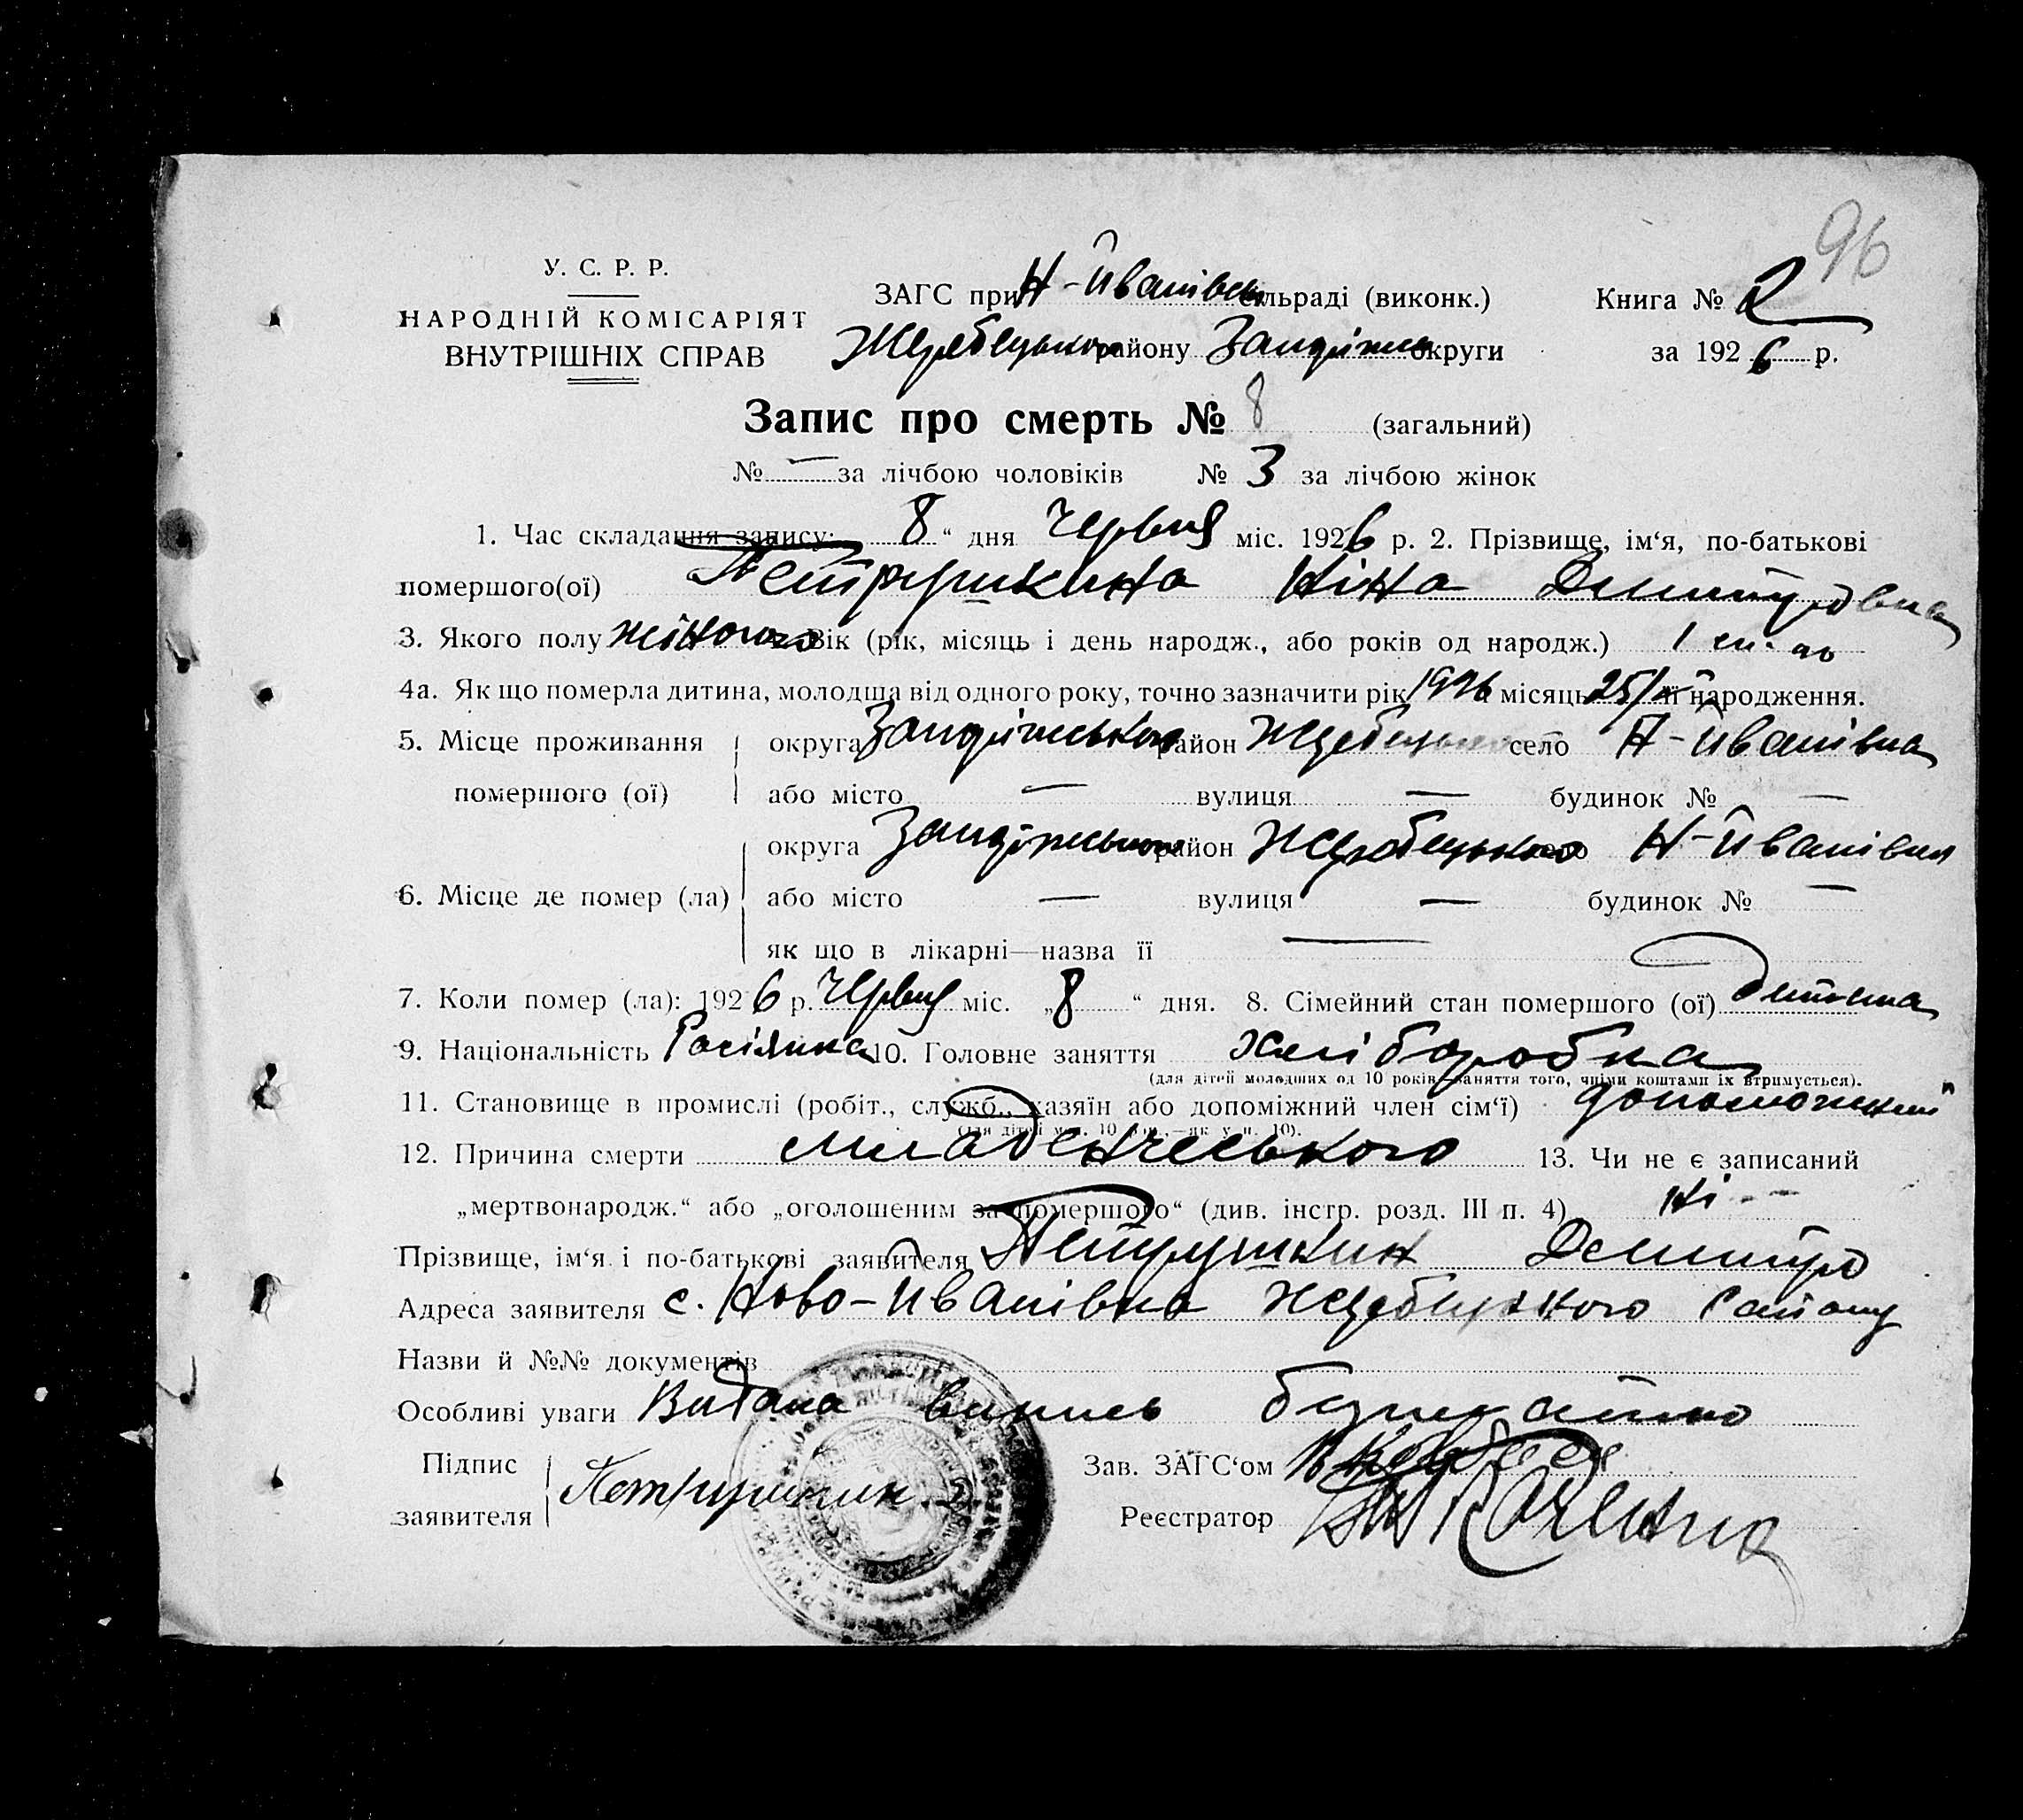 96
У. С. Р. Р.
НАРОДНІЙ КОМІСАРІЯТ
ВНУТРІШНІХ СПРАВ
ЗАГС при Н-Иванівськ сільраді (виконк.)
Жеребецького району Запоріжськ округи
Книга № 2
за 1926 р.
Запис про смерть № 8 (загальний)
№ — за лічбою чоловіків № 3 за лічбою жінок
1. Час складання запису: 8 “ дня Червня міс. 1926 р. 2. Прізвище, ім‘я, по-батькові
помершого(ої) Петрушкина Ніна Дмитровна
3. Якого полу жіночого Вік (рік, місяць і день народж., або років од народж.) 1
4а. Як що померла дитина, молодша від одного року, точно зазначити рік 1926 місяць 25/ її народження.
5. Місце проживання округа Запоріжського район Жеребецького село Н-Иванівка
помершого (ої) або місто — вулиця — будинок № —
округа Запоріжського район Жеребецького село Н-Иванівка
6. Місце де помер (ла) або місто — вулиця — будинок № —
як що в лікарні—назва її —
7. Коли помер (ла): 1926 р. Червня міс. „8 “ дня. 8. Сімейний стан помершого (ої) Дитина
9. Національність Росіянка 10. Головне заняття хліборобка
(для дітей молодших од 10 років—заняття того, чиїми коштами їх втримується).
11. Становище в промислі (робіт., служб., хазяїн або допоміжний член сім‘ї) допоможний
(для дітей мол. 10 рок.,—як у п. 10).
12. Причина смерти младенческого 13. Чи не є записаний
„мертвонародж.“ або „оголошеним за помершого“ (див. інстр. розд. III п. 4) Ні --
Прізвище, ім‘я і по-батькові заявителя Петрушкин Дмитро
Адреса заявителя с. Ново-Иванівка Жеребецького Району
Назви й №№ документів
Особливі уваги Видана випись безплатно
Підпис
заявителя Петрушкин. Д.
Зав. ЗАГС‘ом
Реєстратор